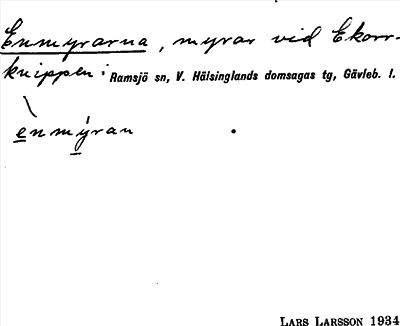 Enmyrarna, myrar vid Ekorr-
knippen i Ramsjö sn, V. Hälsinglands domsagas tg, Gävleb. l.
enmýran
LARS LARSSON 1934